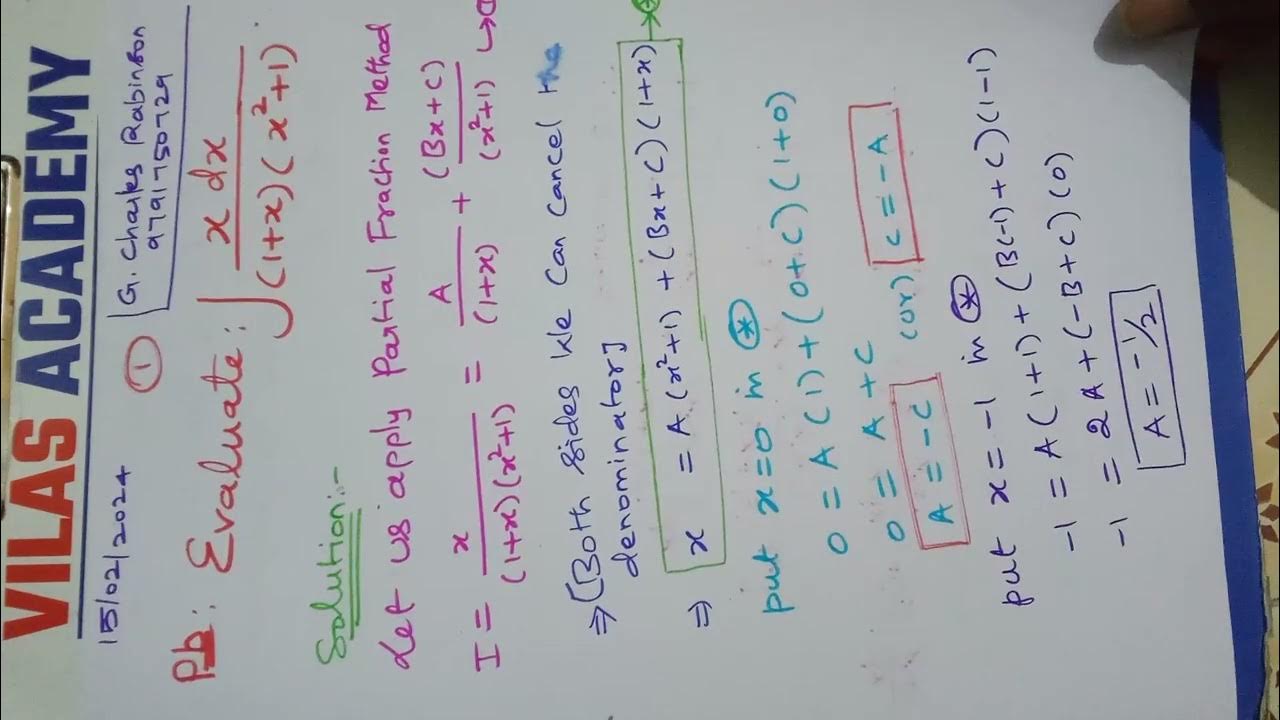 VILAS ACADEMY
15/02/2024 ① G. Charles Rabinson
9791750729
Pb: Evaluate: ∫ x dx / (1+x)(x²+1).
Solution:-
Let us apply Partial Fraction Method
I = x / (1+x)(x²+1) = A / (1+x) + (Bx+C) / (x²+1) →①
⇒ [Both sides We Can Cancel the
denominator]
⇒ x = A(x²+1) + (Bx+C)(1+x) → ⊛
put x=0 in ⊛
0 = A(1) + (0+C)(1+0)
0 = A+C
A = -C (or) C = -A
put x = -1 in ⊛
-1 = A(1+1) + (B(-1)+C)(1-1)
-1 = 2A + (-B+C)(0)
A = -1/2